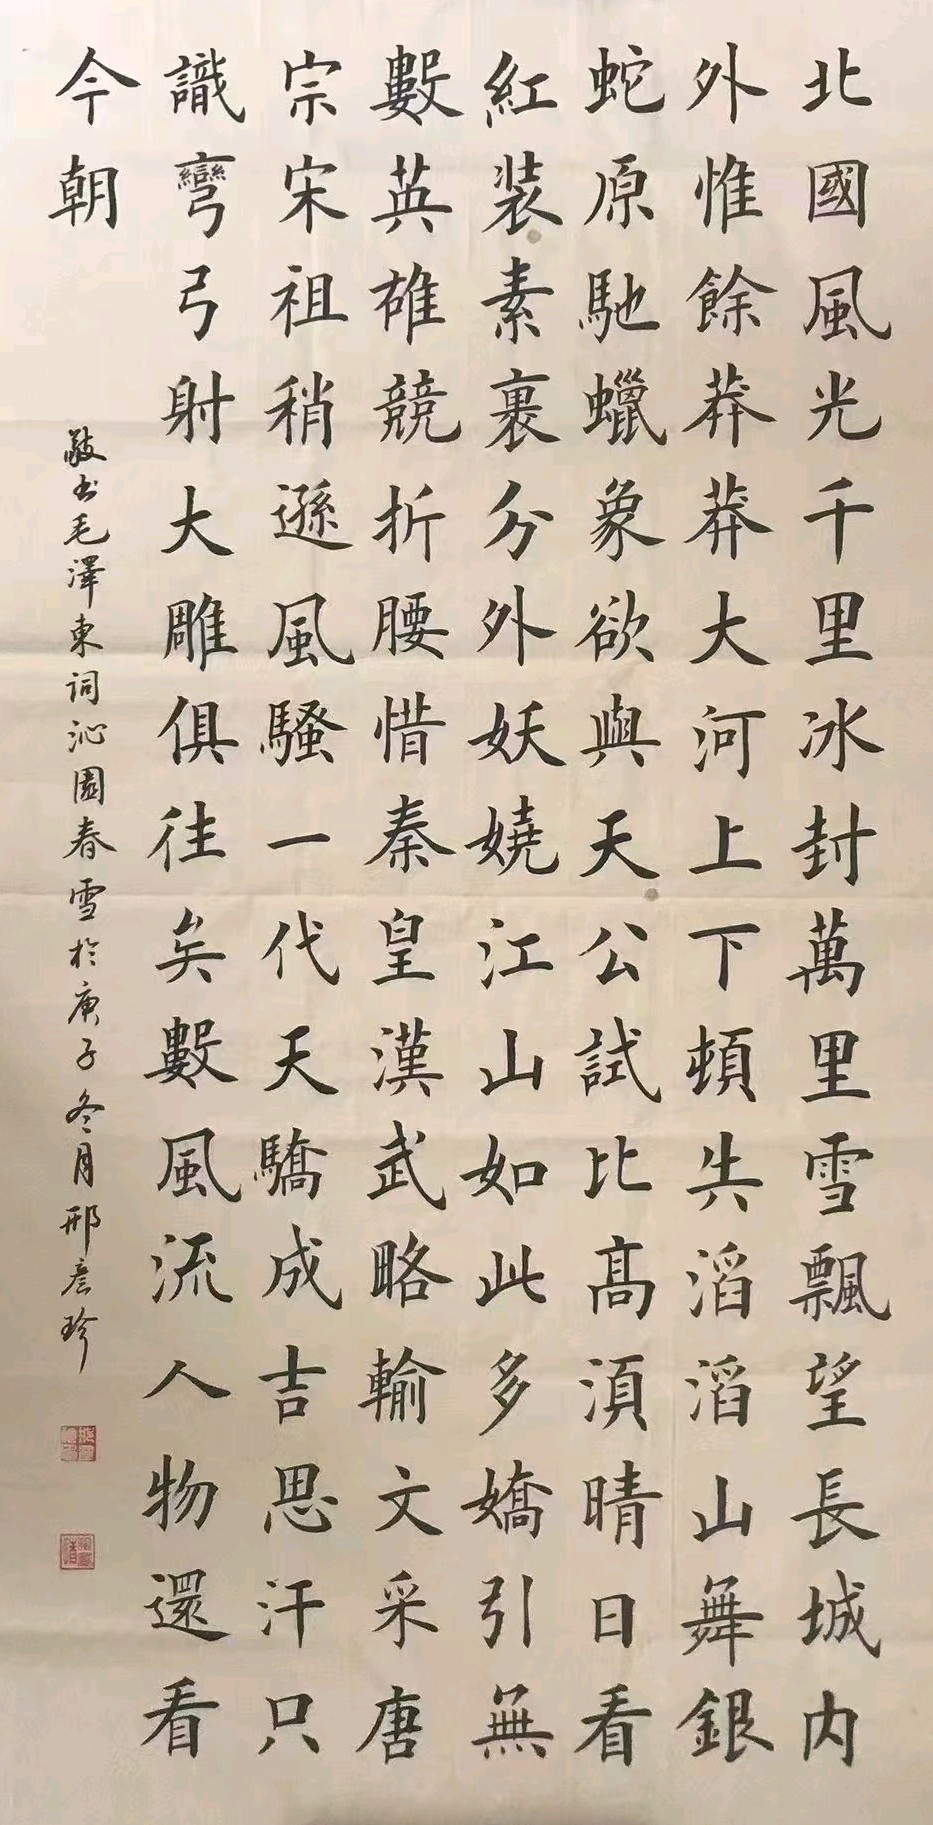 北國風光千里冰封萬里雪飄望長城内
外惟餘莽莽大河上下頓失滔滔山舞銀
蛇原馳蠟象欲與天公試比高須晴日看
紅装素裹分外妖嬈江山如此多嬌引無
數英雄競折腰惜秦皇漢武略輸文采唐
宗宋祖稍遜風騷一代天驕成吉思汗只
識彎弓射大雕俱往矣數風流人物還看
今朝
敬书毛澤東词沁園春雪於庚子冬月邢彦珍